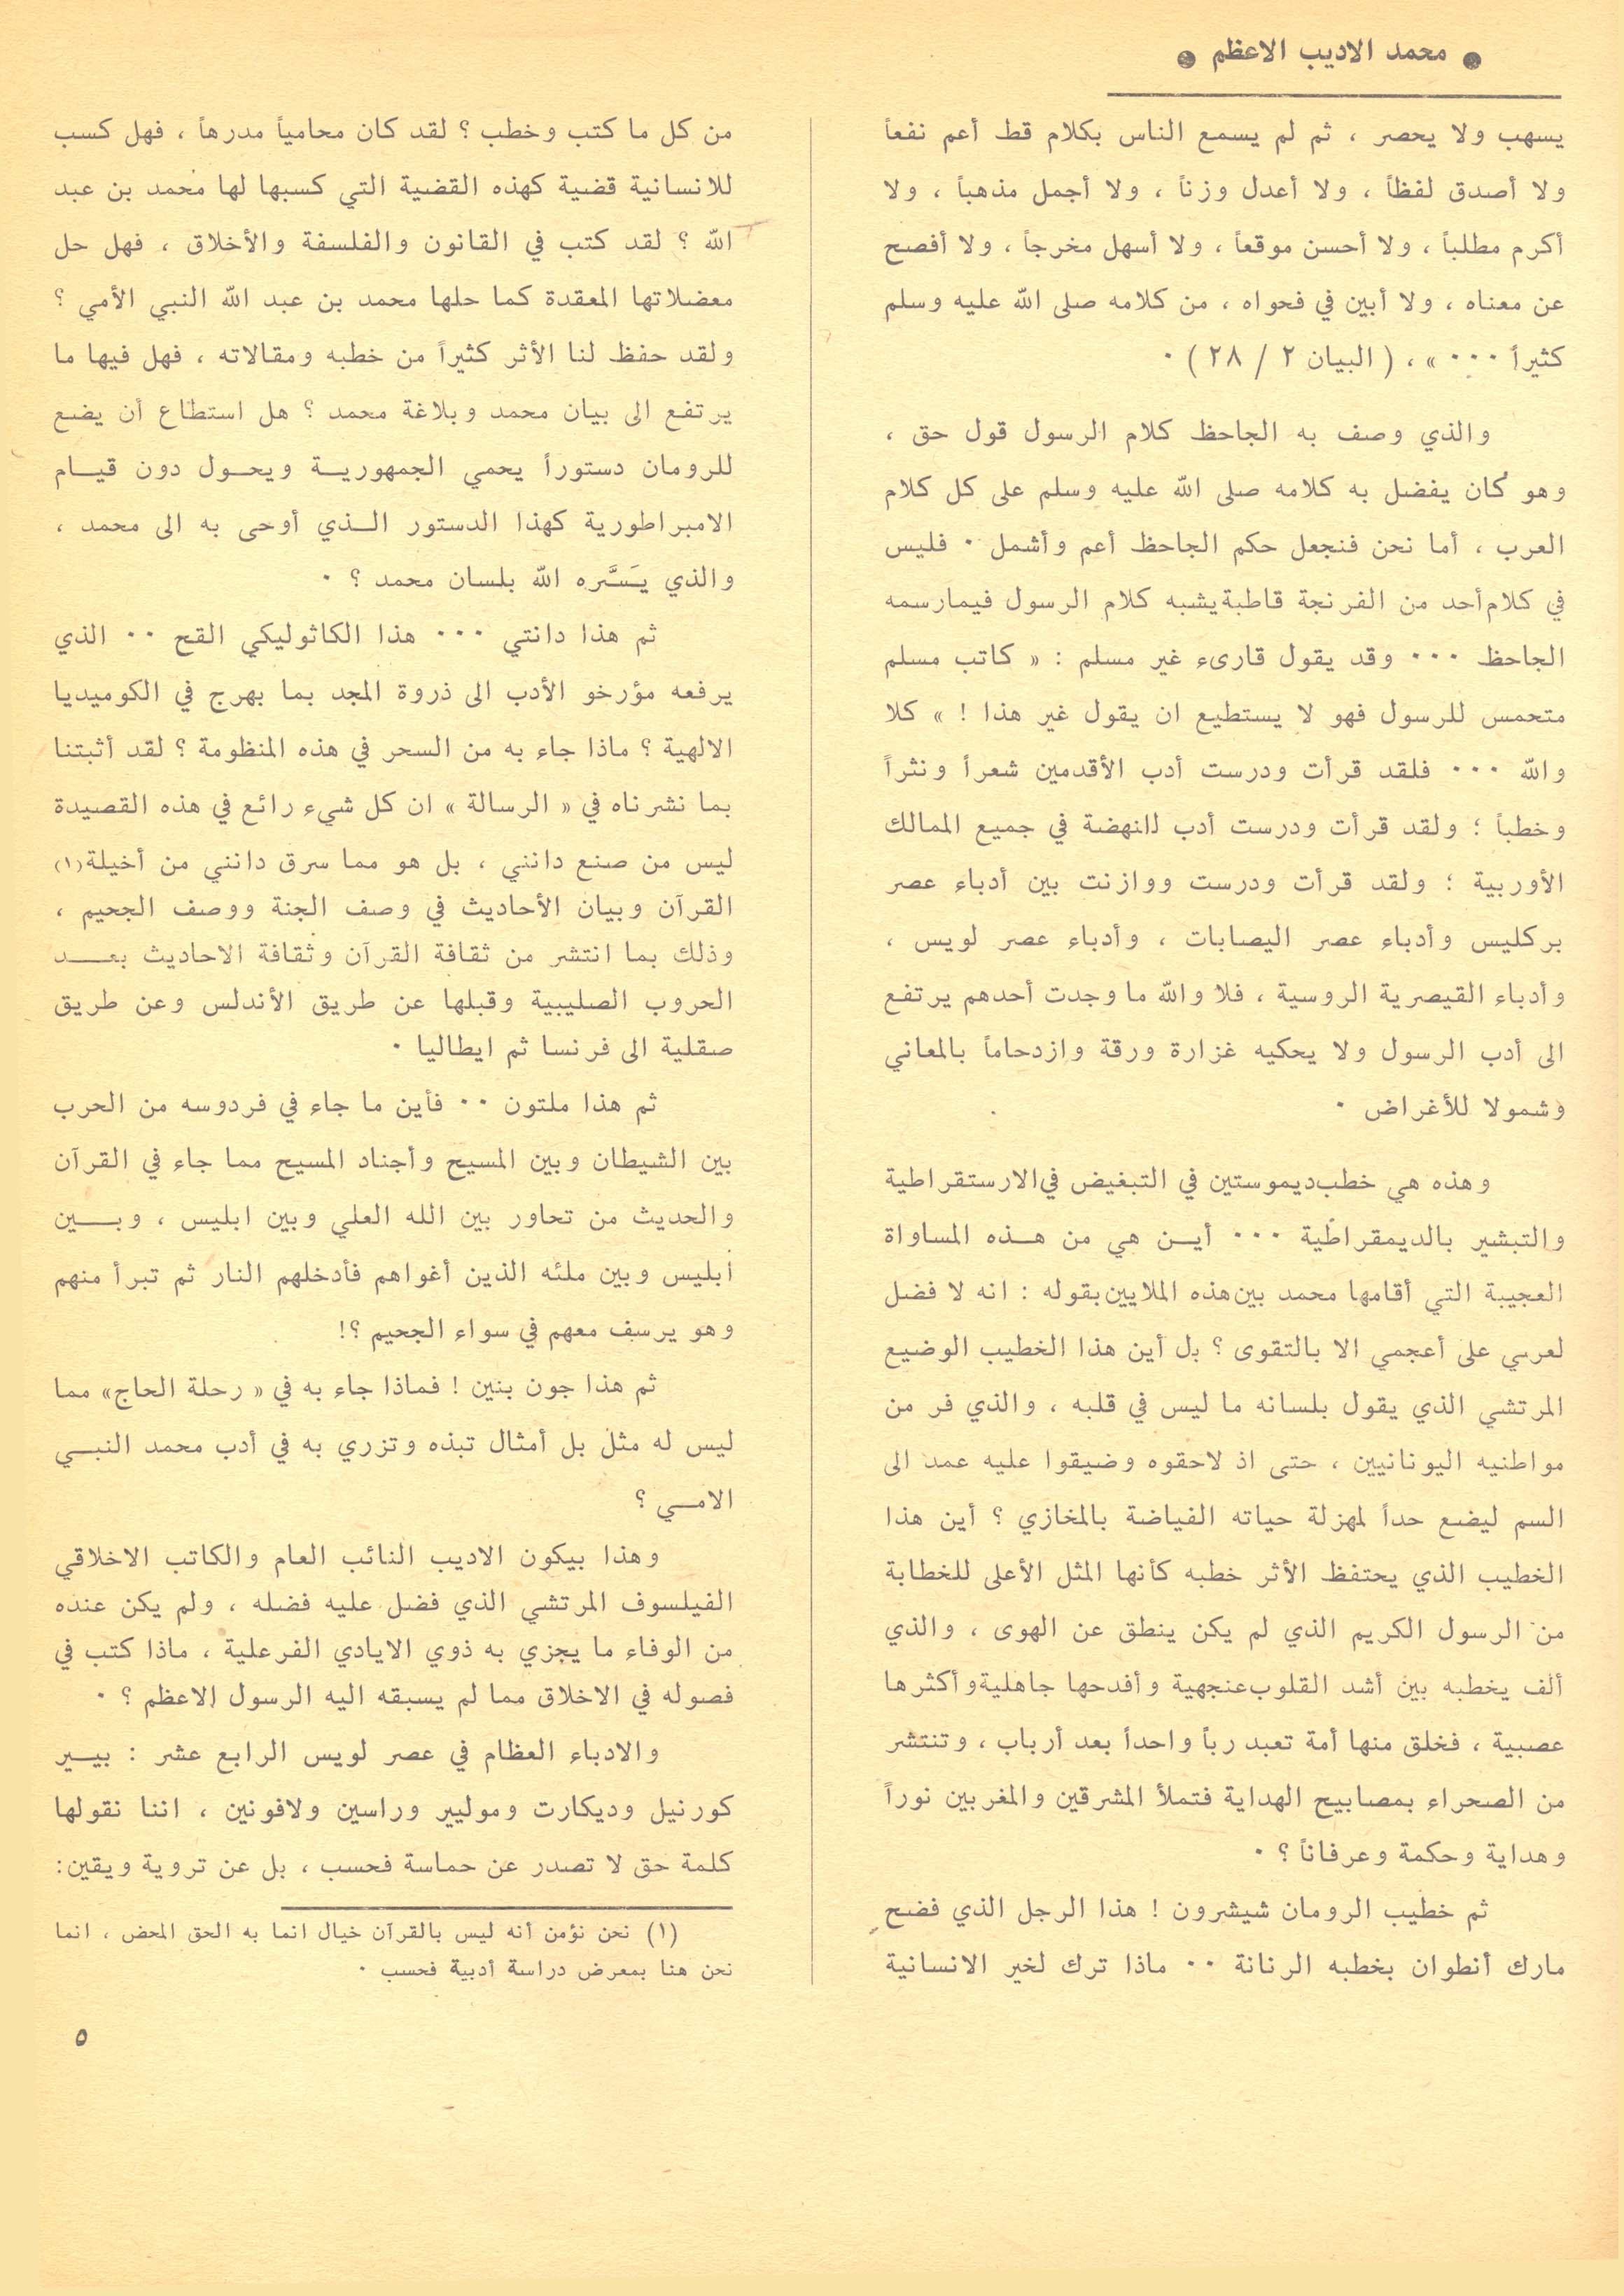 ● محمد الاديب الاعظم ●
يسهب ولا يحصر ، ثم لم يسمع الناس بكلام قط أعم نفعاً
ولا أصدق لفظاً ، ولا أعدل وزناً ، ولا أجمل مذهباً ، ولا
أكرم مطلباً ، ولا أحسن موقعاً ، ولا أسهل مخرجاً ، ولا أفصح
عن معناه ، ولا أبين في فحواه ، من كلامه صلى الله عليه وسلم
كثيراً ٠٠٠ » ، ( البيان ٢ / ٢٨ ) ٠
والذي وصف به الجاحظ كلام الرسول قول حق ،
وهو كان يفضل به كلامه صلى الله عليه وسلم على كل كلام
العرب ، أما نحن فنجعل حكم الجاحظ أعم وأشمل ٠ فليس
في كلام أحد من الفرنجة قاطبة يشبه كلام الرسول فيما رسمه
الجاحظ ٠٠٠ وقد يقول قارىء غير مسلم : « كاتب مسلم
متحمس للرسول فهو لا يستطيع ان يقول غير هذا ! » كلا
والله ٠٠٠ فلقد قرأت ودرست أدب الأقدمين شعراً ونثراً
وخطباً ؛ ولقد قرأت ودرست أدب النهضة في جميع الممالك
الأوربية ؛ ولقد قرأت ودرست ووازنت بين أدباء عصر
بركليس وأدباء عصر اليصابات ، وأدباء عصر لويس ،
وأدباء القيصرية الروسية ، فلا والله ما وجدت أحدهم يرتفع
الى أدب الرسول ولا يحكيه غزارة ورقة وازدحاماً بالمعاني
وشمولا للأغراض ٠
وهذه هي خطب ديموستين في التبغيض في الارستقراطية
والتبشير بالديمقراطية ٠٠٠ أيـن هي من هـذه المساواة
العجيبة التي أقامها محمد بين هذه الملايين بقوله : انه لا فضل
لعربي على أعجمي الا بالتقوى ؟ بل أين هذا الخطيب الوضيع
المرتشي الذي يقول بلسانه ما ليس في قلبه ، والذي فر من
مواطنيه اليونانيين ، حتى اذ لاحقوه وضيقوا عليه عمد الى
السم ليضع حداً لمهزلة حياته الفياضة بالمخازي ؟ أين هذا
الخطيب الذي يحتفظ الأثر خطبه كأنها المثل الأعلى للخطابة
من الرسول الكريم الذي لم يكن ينطق عن الهوى ، والذي
ألف يخطبه بين أشد القلوب عنجهية وأفدحها جاهلية وأكثرها
عصبية ، فخلق منها أمة تعبد رباً واحداً بعد أرباب ، وتنتشر
من الصحراء بمصابيح الهداية فتملأ المشرقين والمغربين نوراً
وهداية وحكمة وعرفاناً ؟ ٠
ثم خطيب الرومان شيشرون ! هذا الرجل الذي فضح
مارك أنطوان بخطبه الرنانة ٠٠ ماذا ترك لخير الانسانية
من كل ما كتب وخطب ؟ لقد كان محامياً مدرهاً ، فهل كسب
للانسانية قضية كهذه القضية التي كسبها لها محمد بن عبد
الله ؟ لقد كتب في القانون والفلسفة والأخلاق ، فهل حل
معضلاتها المعقدة كما حلها محمد بن عبد الله النبي الأمي ؟
ولقد حفظ لنا الأثر كثيراً من خطبه ومقالاته ، فهل فيها ما
يرتفع الى بيان محمد وبلاغة محمد ؟ هل استطاع أن يضع
للرومان دستوراً يحمي الجمهوريـة ويحـول دون قيـام
الامبراطورية كهذا الدستور الـذي أوحى به الى محمد ،
والذي يَسَّره الله بلسان محمد ؟ ٠
ثم هذا دانتي ٠٠٠ هذا الكاثوليكي القح ٠٠ الذي
يرفعه مؤرخو الأدب الى ذروة المجد بما بهرج في الكوميديا
الالهية ؟ ماذا جاء به من السحر في هذه المنظومة ؟ لقد أثبتنا
بما نشرناه في « الرسالة » ان كل شيء رائع في هذه القصيدة
ليس من صنع دانتي ، بل هو مما سرق دانتي من أخيلة (١)
القرآن وبيان الأحاديث في وصف الجنة ووصف الجحيم ،
وذلك بما انتشر من ثقافة القرآن وثقافة الاحاديث بعـــد
الحروب الصليبية وقبلها عن طريق الأندلس وعن طريق
صقلية الى فرنسا ثم ايطاليا ٠
ثم هذا ملتون ٠٠ فأين ما جاء في فردوسه من الحرب
بين الشيطان وبين المسيح وأجناد المسيح مما جاء في القرآن
والحديث من تحاور بين الله العلي وبين ابليس ، وبـــين
أبليس وبين ملئه الذين أغواهم فأدخلهم النار ثم تبرأ منهم
وهو يرسف معهم في سواء الجحيم ؟!
ثم هذا جون بنين ! فماذا جاء به في « رحلة الحاج» مما
ليس له مثل بل أمثال تبذه وتزري به في أدب محمد النبـي
الامـي ؟
وهذا بيكون الاديب النائب العام والكاتب الاخلاقي
الفيلسوف المرتشي الذي فضل عليه فضله ، ولم يكن عنده
من الوفاء ما يجزي به ذوي الايادي الفرعلية ، ماذا كتب في
فصوله في الاخلاق مما لم يسبقه اليه الرسول الاعظم ؟ ٠
والادباء العظام في عصر لويس الرابع عشر : بيـــير
كورنيل وديكارت وموليير وراسين ولافونين ، اننا نقولها
كلمة حق لا تصدر عن حماسة فحسب ، بل عن تروية ويقين:
(١) نحن نؤمن أنه ليس بالقرآن خيال انما به الحق المحض ، انما
نحن هنا بمعرض دراسة أدبية فحسب ٠
٥